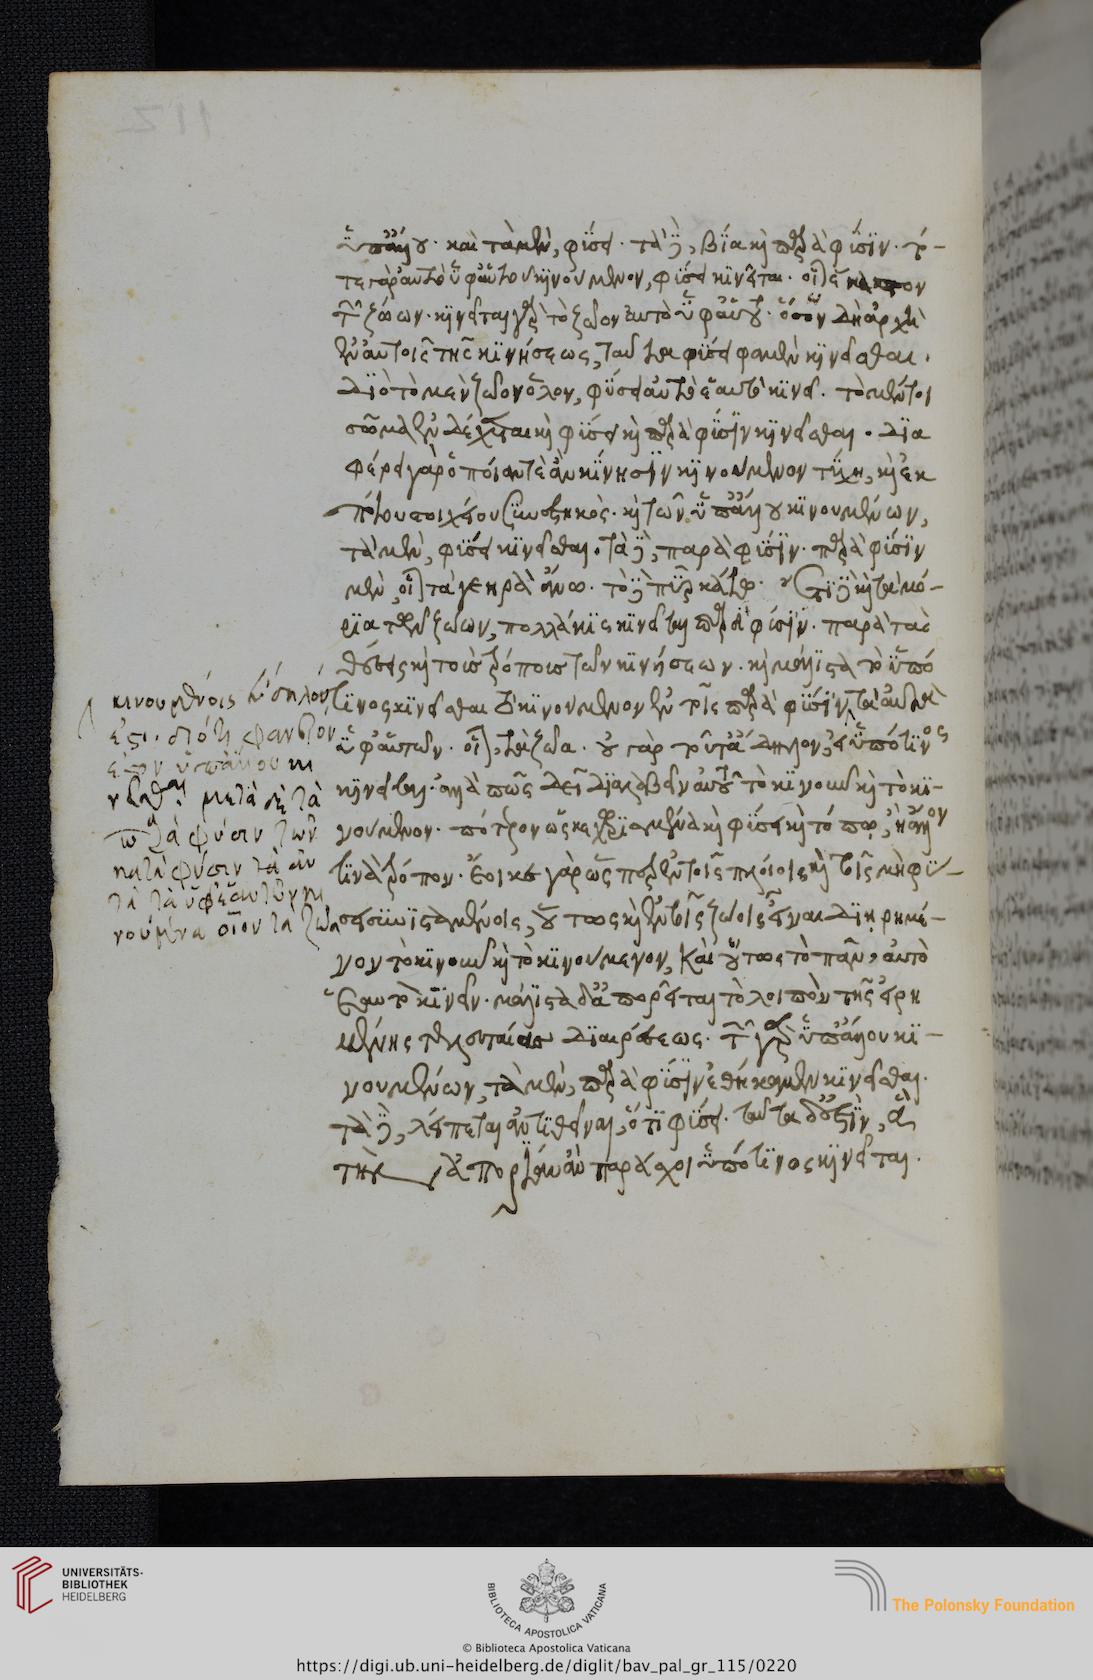 ὑπ' ἄλλου. καὶ τὰ μὲν, φύσει. τὰ δὲ, βία καὶ παρὰ φύσιν. τό-
τε γὰρ αὐτὸ ὑφ' αὑτοῦ κινούμενον, φύσει κινεῖται. οἷον ἕκαστον
τῶν ζώων. κινεῖται γὰρ τὸ ζῶον αὐτὸ ὑφ' αὑτοῦ. ὅσων δ' ἡ ἀρχὴ
ἐν αὐτοῖς τῆς κινήσεως, ταῦτα φύσει φαμὲν κινεῖσθαι.
διὸ τὸ μὲν ζῶον ὅλον, φύσει αὐτὸ ἑαυτὸ κινεῖ. τὸ μέντοι
σῶμα ἐνδέχεται καὶ φύσει καὶ παρὰ φύσιν κινεῖσθαι. δια
φέρει γὰρ ὁποίαν τε ἂν κίνησιν κινούμενον τύχη, καὶ ἐκ
ποίου στοιχείου συνεστηκός. καὶ τῶν ὑπ' ἄλλου κινουμένων,
τὰ μὲν, φύσει κινεῖσθαι. τὰ δὲ, παρὰ φύσιν. παρὰ φύσιν
μὲν, οἷον τὰ γεηρὰ ἄνω. τὸ δὲ πῦρ κάτω. ἔτι δὲ καὶ τὰ μό-
ρια τῶν ζώων, πολλάκις κινεῖται παρὰ φύσιν. παρὰ τὰς
θέσεις καὶ τοὺς τρόπους τῶν κινήσεων. καὶ μάλιστα τὸ ὑπό
τινος κινεῖσθαι τὸ κινούμενον ἐν τοῖς παρὰ φύσιν, τὰ αὐτὰ
ὑφ' αὑτῶν. οἷον, τὰ ζῶα. οὐ γὰρ τοῦτ' ἄδηλον, εἰ ὑπό τινος
κινεῖται. ἀλλὰ πῶς δεῖ διαλαβεῖν αὐτοῦ τὸ κινοῦν καὶ τὸ κι-
νούμενον. πότερον ὡς κεχωρισμένα καὶ φύσει καὶ τόπω, ἢ ἄλλον
τινὰ τρόπον. ἔοικε γὰρ ὥσπερ ἐν τοῖς πλοίοις καὶ τοῖς μὴ φύ-
σει συνισταμένοις, οὕτως καὶ ἐν τοῖς ζώοις εἶναι διηρημέ-
νον τὸ κινοῦν καὶ τὸ κινούμενον, καὶ οὕτως τὸ πᾶν, αὐτὸ
ἑαυτὸ κινεῖν. μάλιστα δ' ἀπορεῖται τὸ λοιπὸν τῆς εἰρη
μένης τελευταίας διαιρέσεως. τῶν γὰρ ὑπ' ἄλλου κι-
νουμένων, τὰ μὲν, παρὰ φύσιν ἐθήκαμεν κινεῖσθαι.
τὰ δὲ, λείπεται ἀντιθεῖναι, ὅτι φύσει. ταῦτα δ' ἐστὶν, ἃ
τὴν ἀπορίαν ἂν παράσχοι ὑπό τινος κινεῖται.
κινουμένοις
ἐστι διότι φανερὸν
εἶναι ὑπ' ἄλλου κι
νεῖσθαι. μετὰ δὲ τὰ
παρὰ φύσιν τῶν
κατὰ φύσιν τὰ αὐ
τὰ τὰ ὑφ' ἑαυτῶν κι
νούμενα οἷον τὰ ζῶα
UNIVERSITÄTS-
BIBLIOTHEK
HEIDELBERG
BIBLIOTECA APOSTOLICA VATICANA
The Polonsky Foundation
© Biblioteca Apostolica Vaticana
https://digi.ub.uni-heidelberg.de/diglit/bav_pal_gr_115/0220